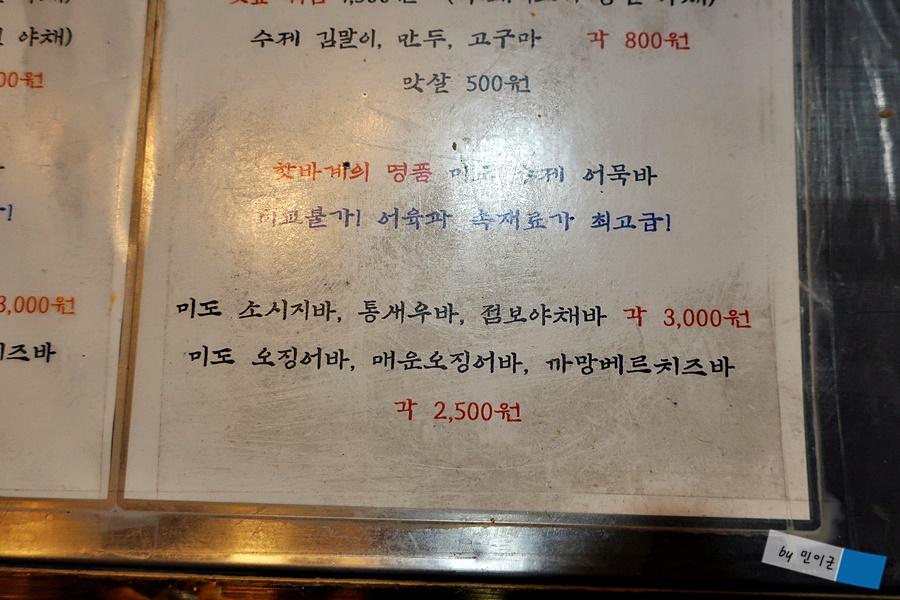 야채)
00원
3,000원
치즈바
수제 김말이, 만두, 고구마 각 800원
맛살 500원
핫바계의 명품 미도 수제 어묵바
비교불가! 어육과 속재료가 최고급!
미도 소시지바, 통새우바, 점보야채바 각 3,000원
미도 오징어바, 매운오징어바, 까망베르치즈바
각 2,500원
by 민이군